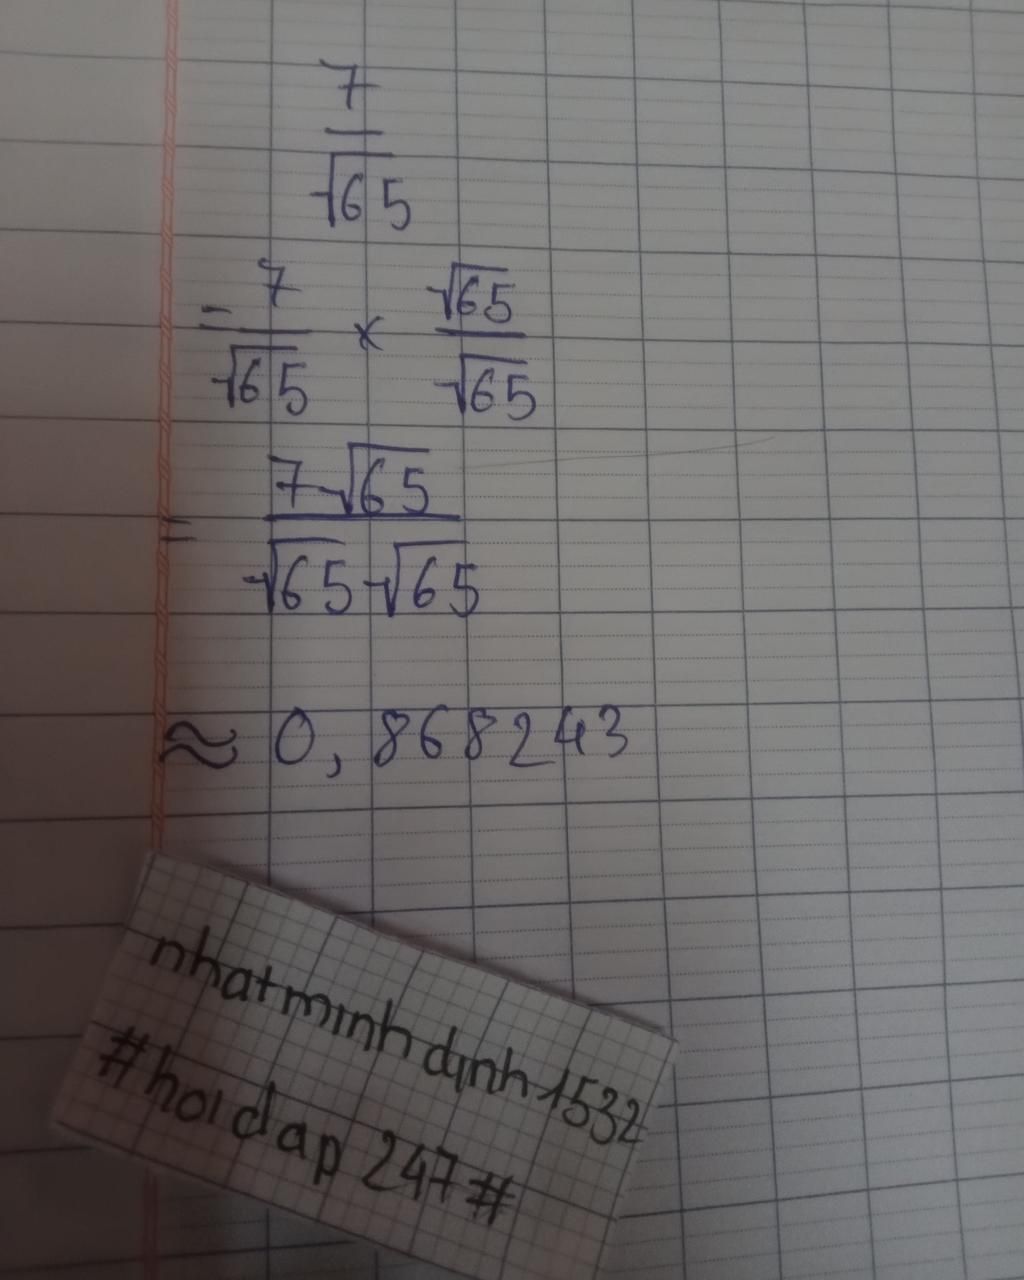 7
√65
= 7 × √65
√65 √65
= 7√65
√65 √65
≈ 0,868243
nhatminhdinh1532
#hoidap247#